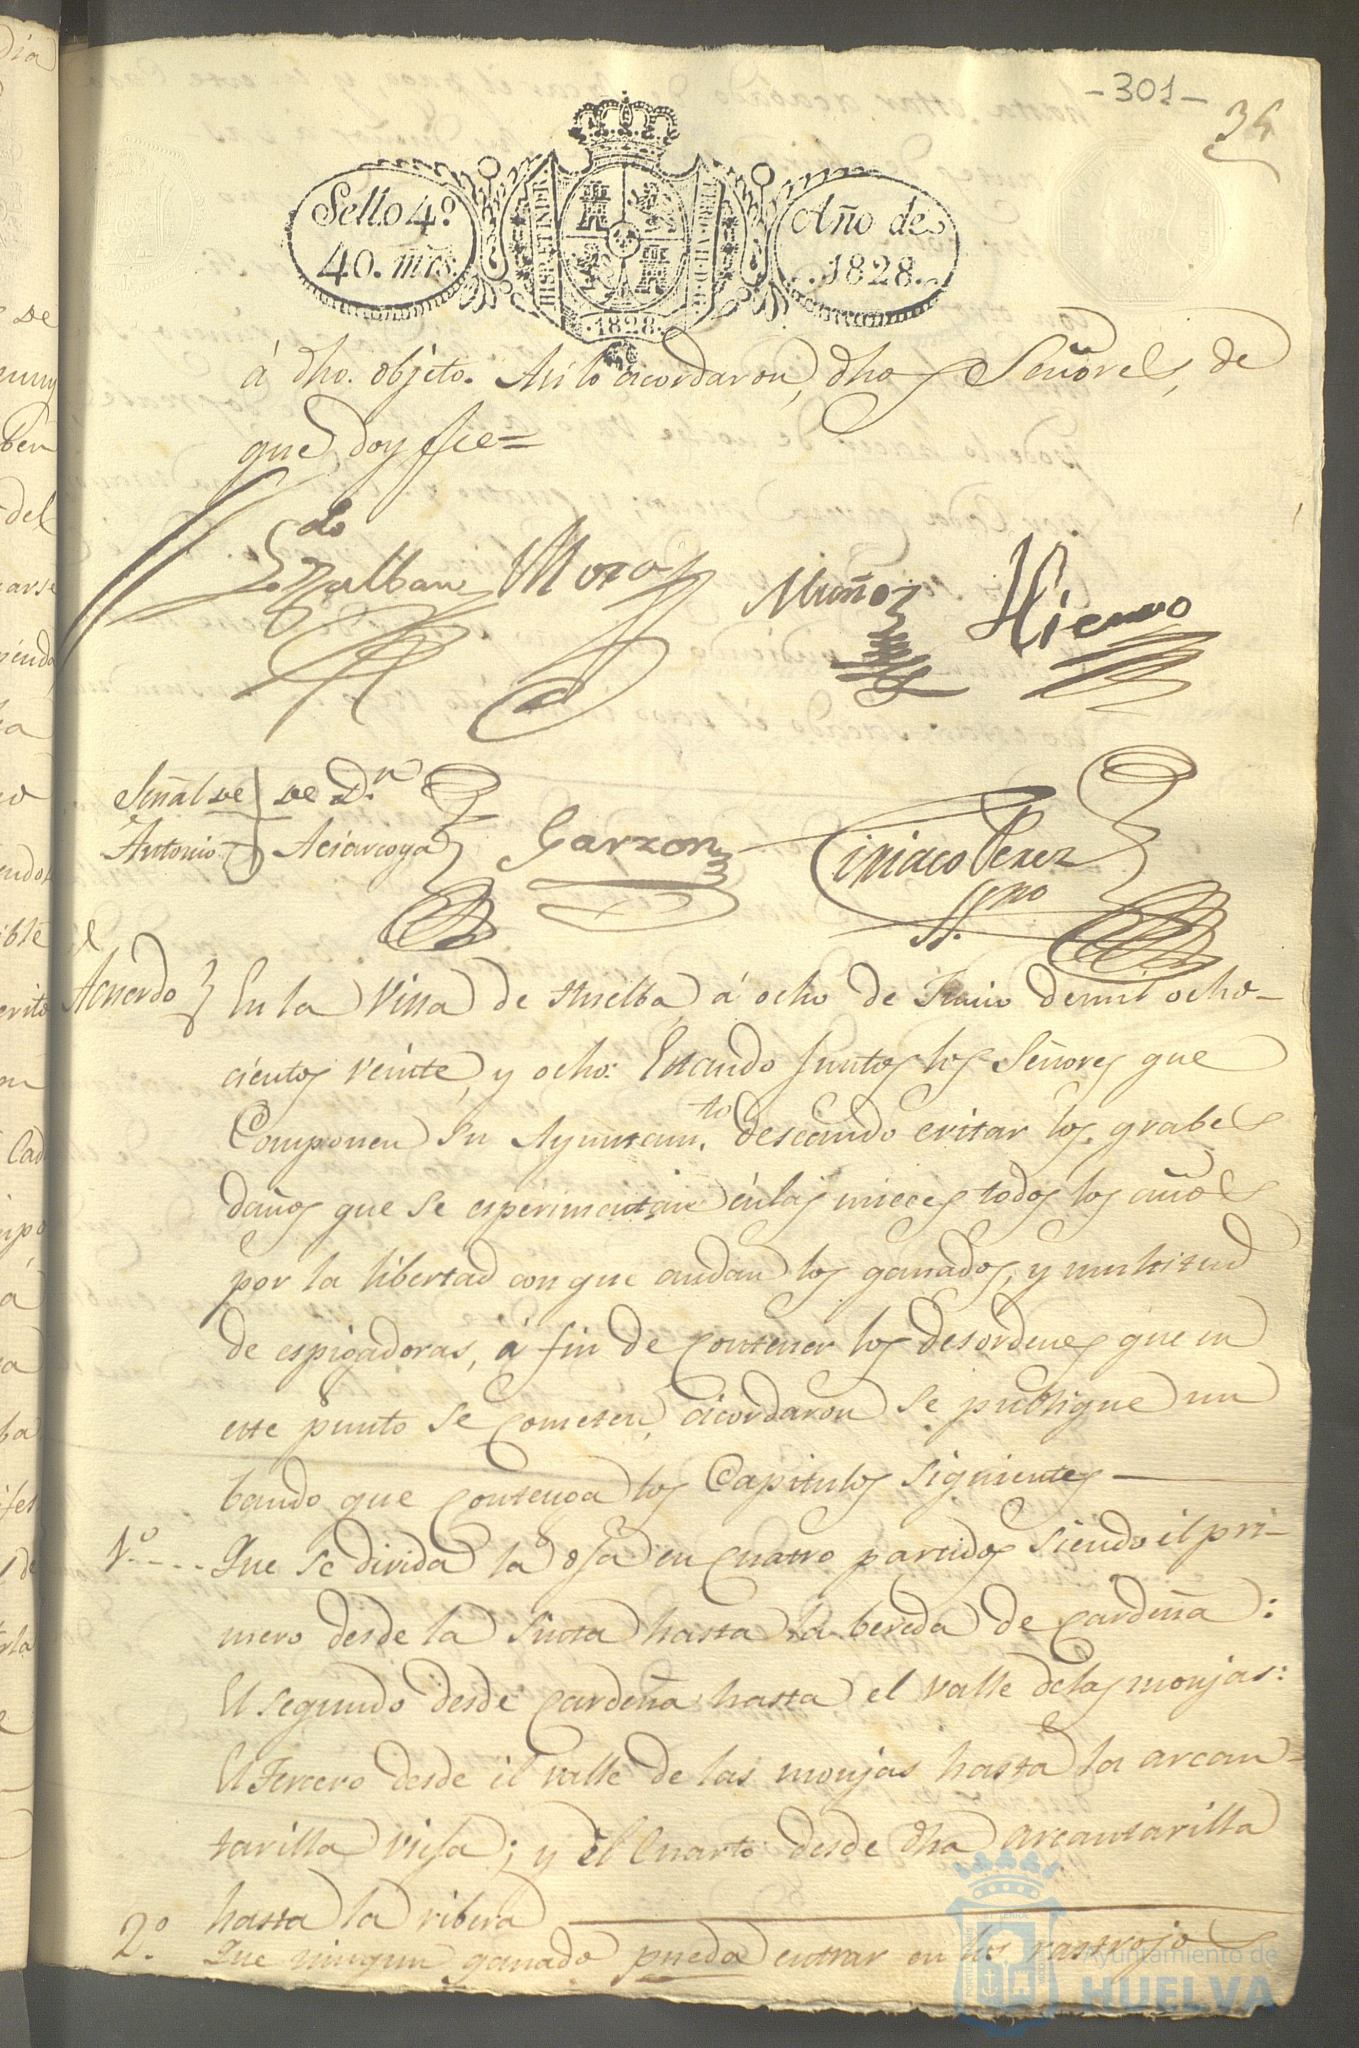 -301-
34
Sello 4º
40. mrs.
HISP. ET IND. R.
Año de
1828.
.1828.
á dho. objeto. Asi lo acordaron, dhos Señores, de
que doy fee=
Ldo
Zalban Moro Muñoz Hierro
Señal de de Dn.
Antonio Garzon Ciriaco Perez
Ssno
Acuerdo En la Villa de Huelba, á ocho de Junio de mil ocho-
cientos veinte, y ocho: Estando Juntos los Señores que
Componen su Ayuntam.to deseando evitar los grabes
daños que se esperimentan én las mieces todos los años
por la libertad con que andan los ganados, y multitud
de espigadoras, á fin de Contener los desórdenes que en
este punto se cometen, acordaron se publique un
bando que contenga los Capitulos siguientes
1º. Que se divida la oja en Cuatro partidos siendo el pri-
mero desde la hasta la bereda de Cardeña:
El segundo desde Cardeña hasta el valle de las monjas:
El Tercero desde el valle de las monjas hasta la arcan-
tarilla vieja; y el Cuarto desde dha arcantarilla
hasta la ribera
2º. Que ningun ganado pueda entrar en los rastrojos
Ayuntamiento de
HUELVA